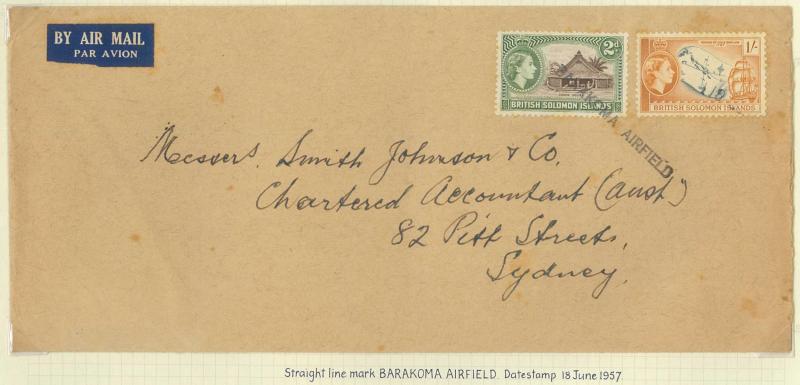 BY AIR MAIL
PAR AVION
2d
BRITISH SOLOMON ISLANDS
1/-
BRITISH SOLOMON ISLANDS
BARAKOMA AIRFIELD
Messers. Smith Johnson & Co.
Chartered Accountant (Aust)
82 Pitt Streets,
Sydney.
Straight line mark BARAKOMA AIRFIELD. Datestamp 18 June 1957.